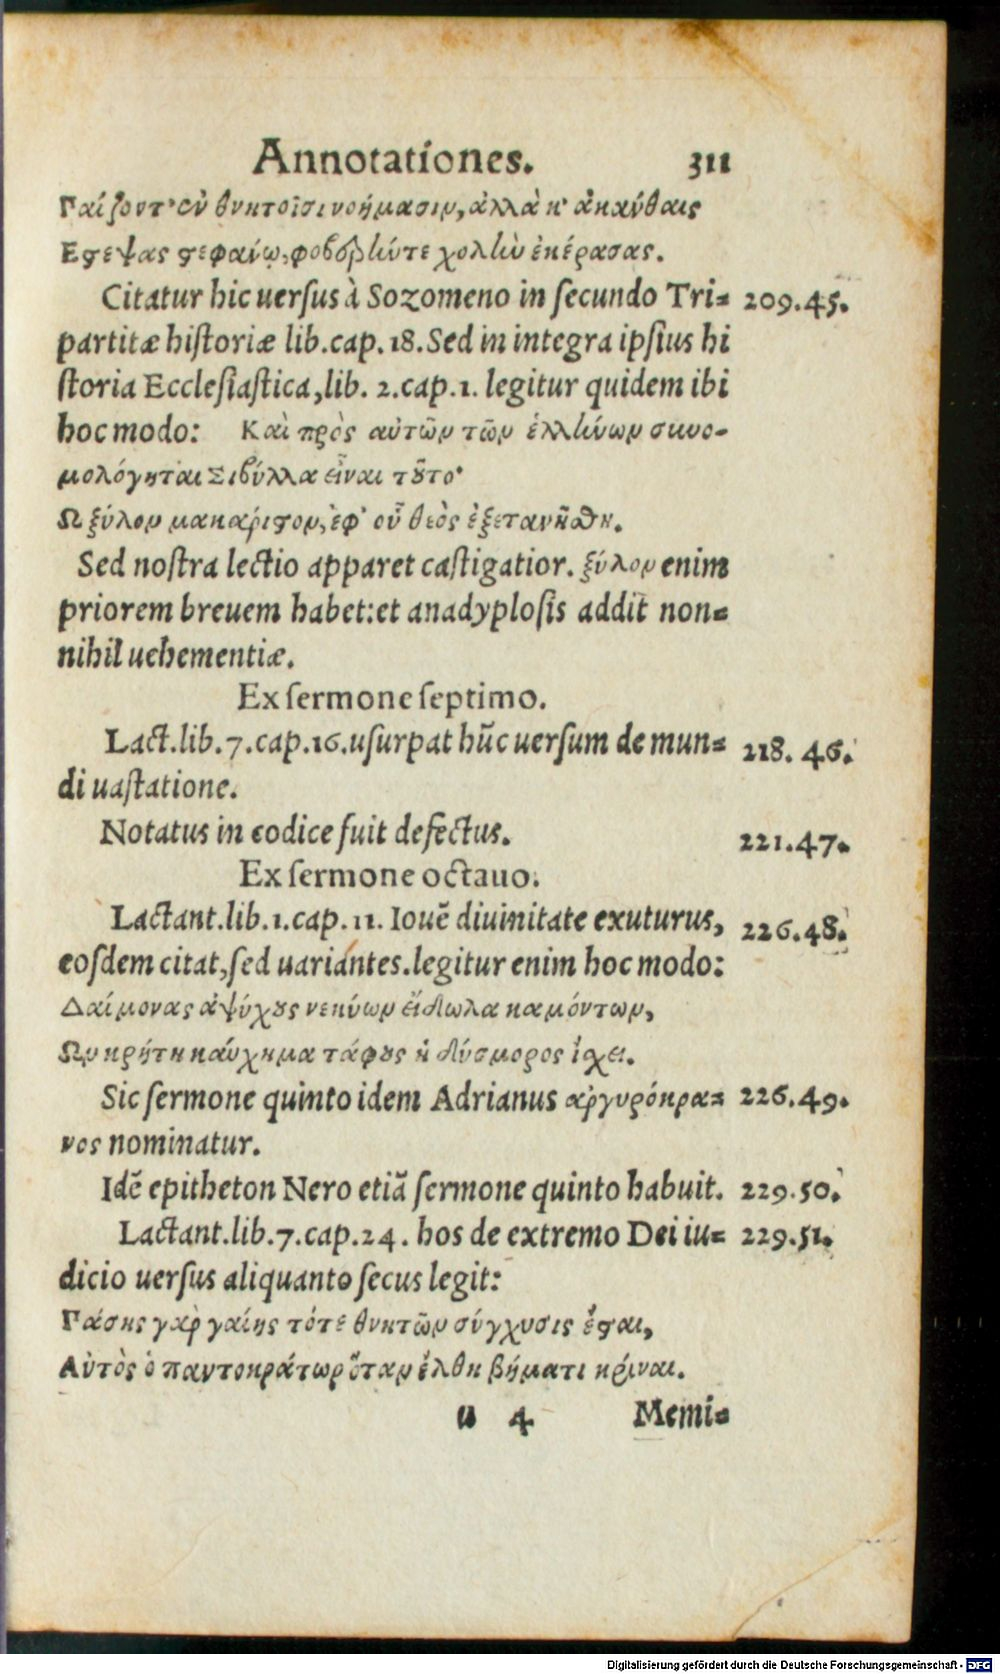 Annotationes. 311
Παίζοντ' ἐν θνητοῖσι νοήμασιν, ἀλλὰ κ' ἀκαύθαις
Εστεψας στεφανίῳ, φοβερlώ τε χολlὼ ἐκέρασας.
Citatur hic uersus à Sozomeno in secundo Tri= 209.45.
partitæ historiæ lib.cap.18. Sed in integra ipsius hi
storia Ecclesiastica, lib. 2.cap.1. legitur quidem ibi
hoc modo: Καὶ πρὸς αὐτῶν τῶν ἑλλήνων συνο-
μολόγηται Σιβύλλα εἶναι τοῦτο·
Ω ξύλον μακάριστον, ἐφ' οὗ θεὸς ἐξετανύσθη.
Sed nostra lectio apparet castigatior. ξύλον enim
priorem breuem habet: et anadyplosis addit non=
nihil uehementiæ.
Ex sermone septimo.
Lact.lib.7.cap.16.usurpat hūc uersum de mun= 218. 46.
di uastatione.
Notatus in codice fuit defectus. 221.47.
Ex sermone octauo.
Lactant.lib.1.cap.11. Iouē diuinitate exuturus, 226.48.
eosdem citat, sed uariántes.legitur enim hoc modo:
Δαίμονας ἀψύχους νεκύων εἴδωλα καμόντων,
Ων κρήτη καύχημα τάφους ἡ δύσμορος ἰχει.
Sic sermone quinto idem Adrianus ἀργυρόκρα= 226.49.
νος nominatur.
Idē epitheton Nero etiā sermone quinto habuit. 229.50.
Lactant.lib.7.cap.24. hos de extremo Dei iu= 229.51.
dicio uersus aliquanto secus legit:
Πάσης γὰρ γαίης τότε θνητῶν σύγχυσις ἔσται,
Αὐτὸς ὁ παντοκράτωρ ὅταν ἔλθῃ βήματι κρίναι.
u 4 Memi=
Digitalisierung gefördert durch die Deutsche Forschungsgemeinschaft - DFG